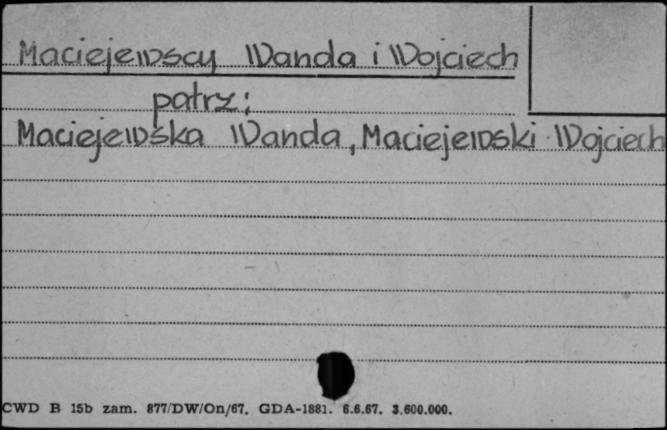 Maciejewscy Wanda i Wojciech
patrz:
Maciejewska Wanda, Maciejewski Wojciech
CWD B 15b zam. 877/DW/On/67. GDA-1881. 6.6.67. 3.600.000.